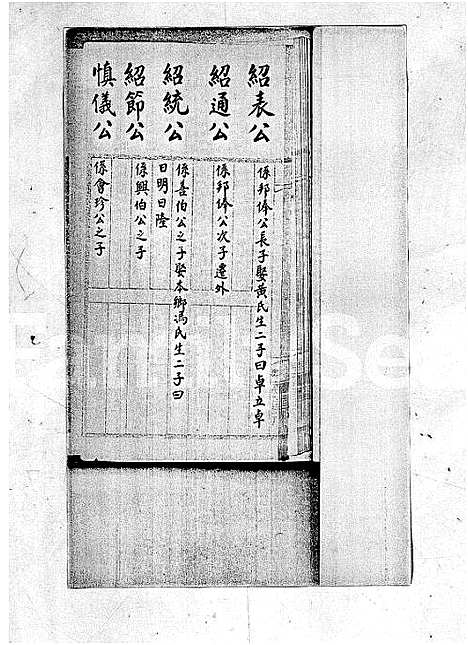 紹表公
係邦俸公長子娶黃氏生二子曰卓立卓
紹通公
係邦俸公次子遷外
紹統公
係喜伯公之子娶本鄉馮氏生二子曰
日明日隆
紹節公
係興伯公之子
慎儀公
係會珍公之子